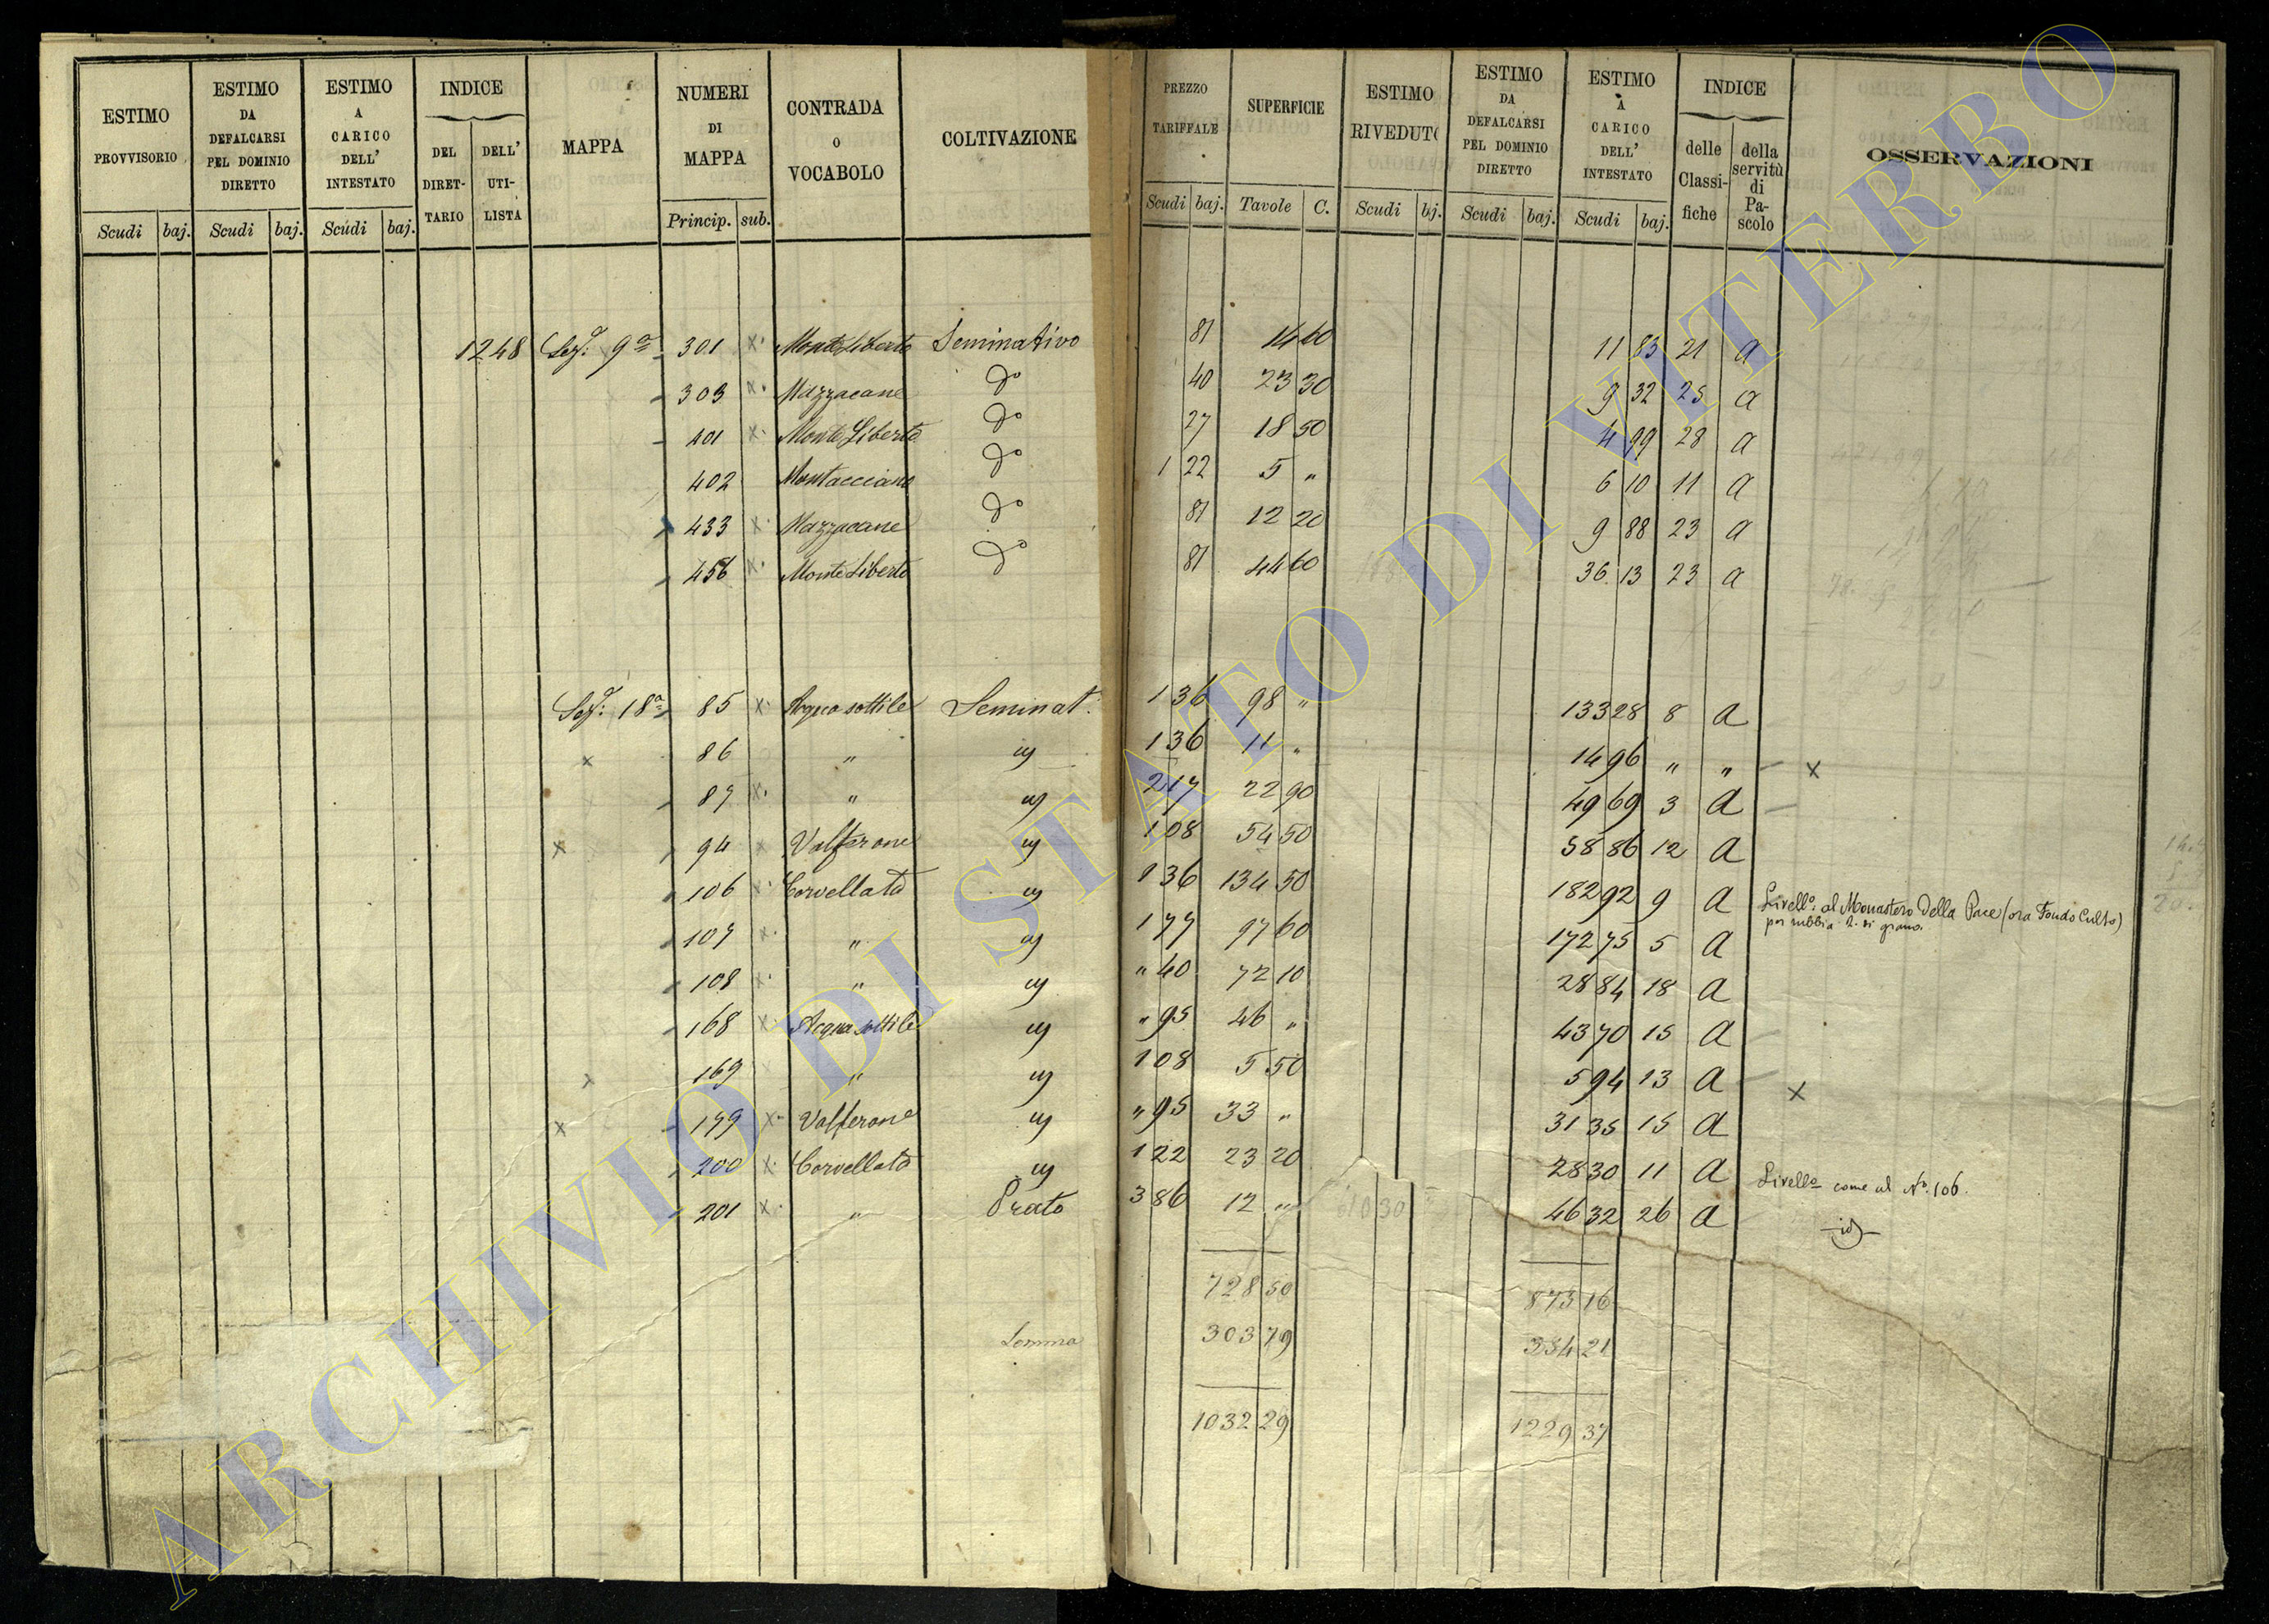 ESTIMO PROVVISORIO | ESTIMO DA DEFALCARSI PEL DOMINIO DIRETTO | ESTIMO A CARICO DELL' INTESTATO | INDICE DEL DIRET-TARIO | DELL' UTI-LISTA | MAPPA | NUMERI DI MAPPA | CONTRADA O VOCABOLO | COLTIVAZIONE | PREZZO TARIFFALE | SUPERFICIE | ESTIMO RIVEDUTO | ESTIMO DA DEFALCARSI PEL DOMINIO DIRETTO | ESTIMO A CARICO DELL' INTESTATO | INDICE delle Classi-fiche | della servitù di Pa-scolo | OSSERVAZIONI
Scudi | baj. | Scudi | baj. | Scudi | baj. | Princip. | sub. | Scudi | baj. | Tavole | C. | Scudi | bj. | Scudi | baj. | Scudi | baj.
1248 Sez: 9a 301 x Monte Liberto Seminativo 81 14 60 11 83 21 a
303 x Mazzacane do 40 23 30 9 32 25 a
401 x Monte Liberto do 27 18 50 4 99 28 a
402 Montacciano do 1 22 5 „ 6 10 11 a
433 x Mazzacane do 81 12 20 9 88 23 a
456 x Monte Liberto do 81 44 60 36 13 23 a
Sez: 18a 85 x Acqua sottile Seminat. 1 36 98 „ 133 28 8 a
x 86 „ id 1 36 11 „ 14 96 „ „ x
87 x „ id 2 17 22 90 49 69 3 a
x 94 x Valferone id 1 08 54 50 58 86 12 a
106 x Corvellata id 1 36 134 50 182 92 9 a Livello: al Monastero della Pace (ora Fondo Culto)
per rubbia 2. di grano.
107 x „ id 1 77 97 60 172 75 5 a
108 x „ id „ 40 72 10 28 84 18 a
168 x Acqua sottile id „ 95 46 „ 43 70 15 a
x 169 „ id 1 08 5 50 5 94 13 a x
x 199 x Valferone id „ 95 33 „ 31 35 15 a
200 x Corvellata id 1 22 23 20 28 30 11 a Livello come al No. 106.
201 x „ Prato 3 86 12 „ 46 32 26 a id
728 50 873 16
Somma 303 79 354 21
1032 29 1229 37
ARCHIVIO DI STATO DI VITERBO